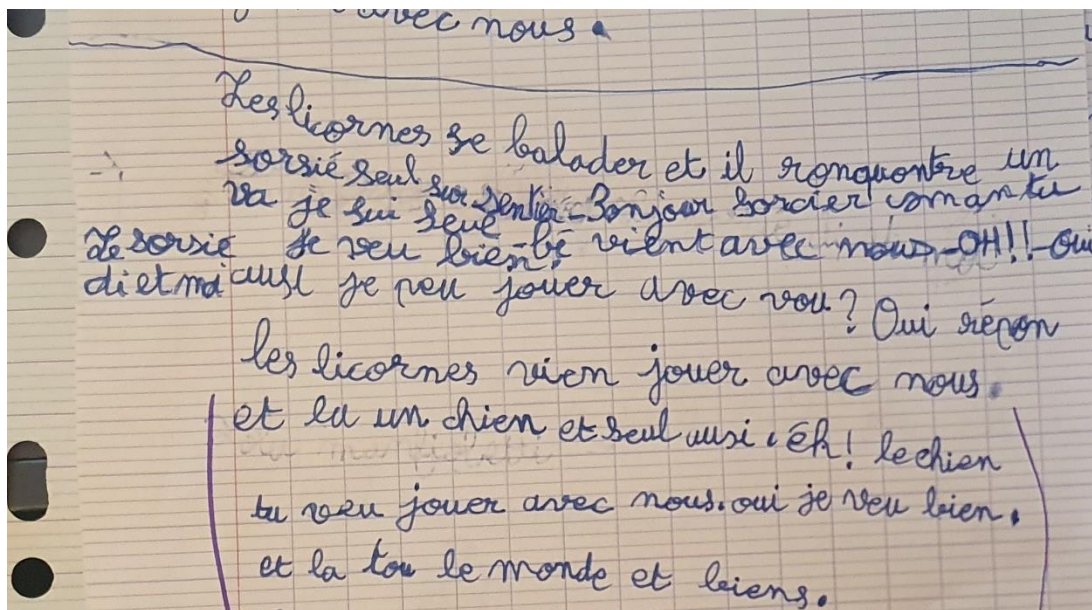 avec nous.
Les licornes se balader et il ronquontre un
sorsié seul sur sentier - Bonjour sorcier coman tu
va je sui seul
Le sorsié je veu bien - bé vient avec nous - OH!! - oui
di et moi ausi je peu jouer avec vou? Oui répon
les licornes vien jouer avec nous.
et la un chien et seul ausi. éh! le chien
tu veu jouer avec nous. oui je veu bien.
et la tou le monde et biens.